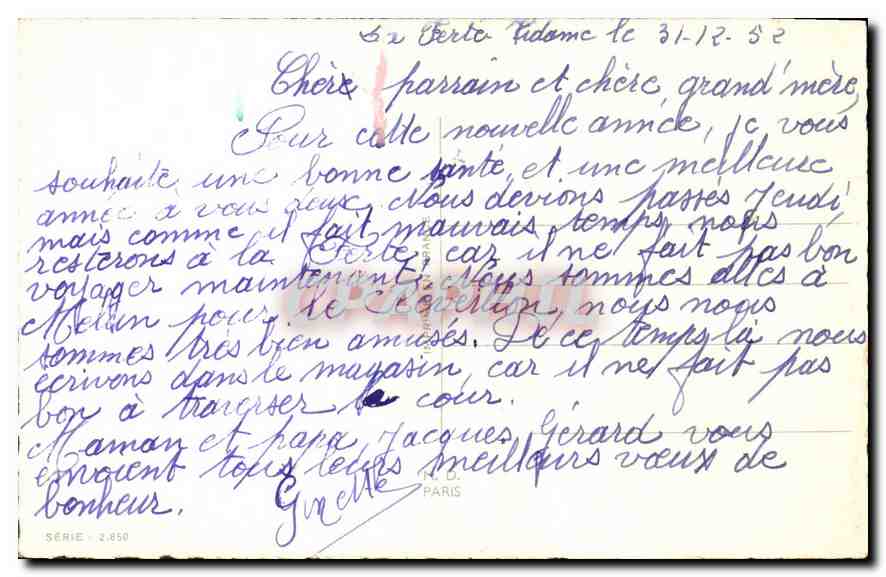 La Ferté Vidame le 31-12-52
Chère parrain et chère grand'mère,
Pour cette nouvelle année, je vous
souhaite une bonne santé et une meilleure
année à vous deux. Nous devions passés Jeudi,
mais comme il fait mauvais temps, nous
resterons à la Ferté, car il ne fait pas bon
voyager maintenant. Nous sommes allés à
Melun pour le Réveillon, nous nous
sommes très bien amusés. De ce temps là nous
écrivons dans le magasin, car il ne fait pas
bon à traverser la cour.
Maman et papa, Jacques, Gérard vous
envoient tous leurs meilleurs vœux de
bonheur. Ginette
N. D.
PARIS
SÉRIE - 2.850